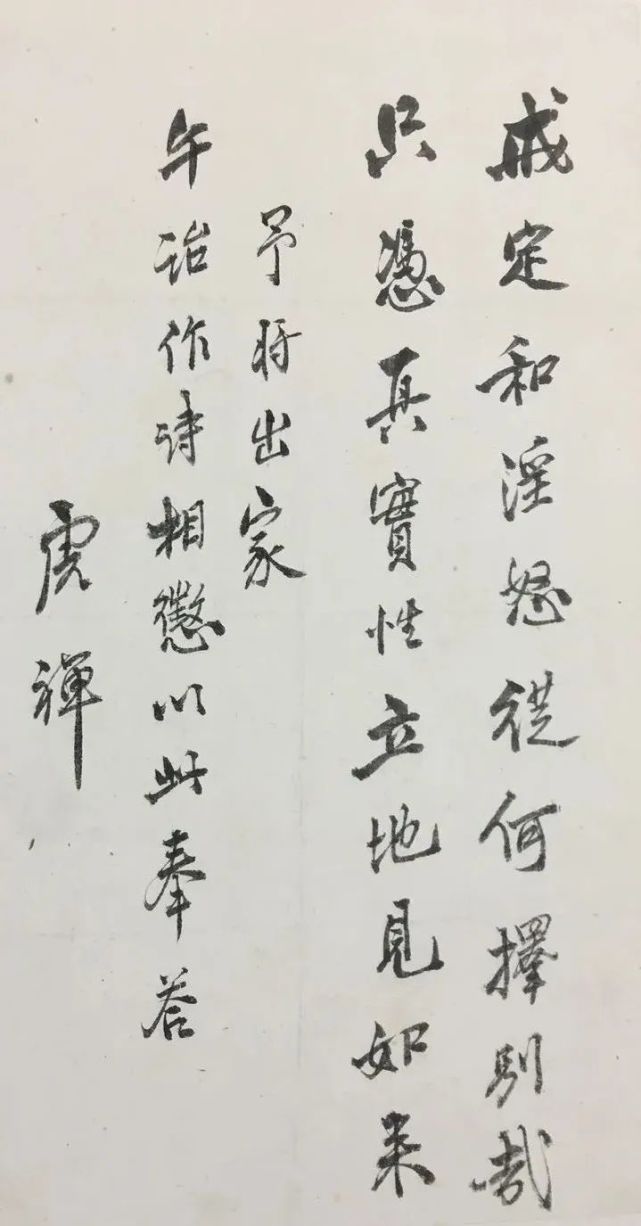 戒定和淫怒從何擇別哉
只憑真實性立地見如来
予将出家
午詒作詩相懲以此奉荅
虎禪